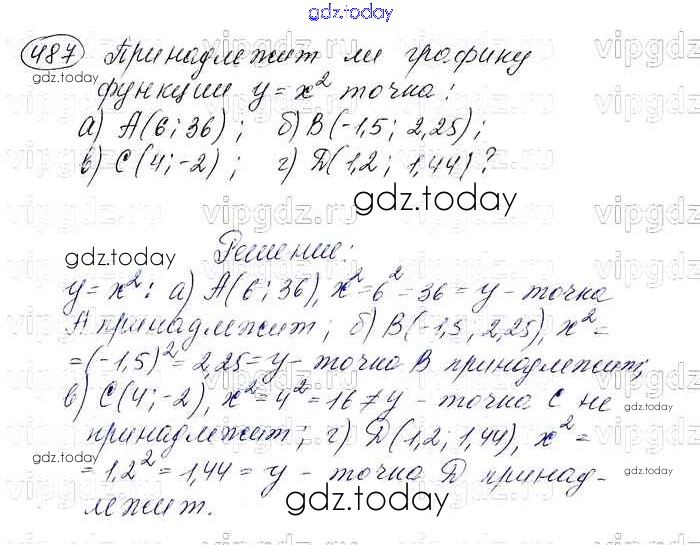 gdz.today
487 Принадлежит ли графику
функции y = x² точка:
а) A(6; 36); б) B(-1,5; 2,25);
в) C(4; -2); г) D(1,2; 1,44)?
gdz.today
gdz.today
gdz.today
Решение:
y = x²: а) A(6; 36), x² = 6² = 36 = y - точка
A принадлежит; б) B(-1,5; 2,25), x² =
= (-1,5)² = 2,25 = y - точка B принадлежит;
в) C(4; -2), x² = 4² = 16 ≠ y - точка C не
принадлежит; г) D(1,2; 1,44), x² =
= 1,2² = 1,44 = y - точка D принад-
лежит.
gdz.today
gdz.today
gdz.today
gdz.today
gdz.today